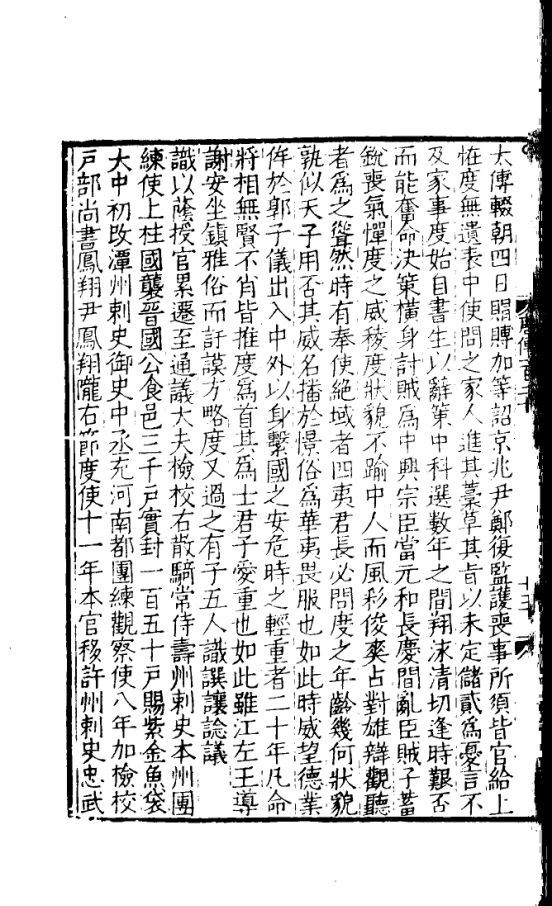 太傅輟朝四日賵賻加等詔京兆尹鄭復監護喪事所須皆官給上
恠度無遺表中使問之家人進其藁草其旨以未定儲貳爲憂言不
及家事度始自書生以辭策中科選數年之間翔泳清切逢時艱否
而能奮命決策橫身討賊爲中興宗臣當元和長慶間亂臣賊子蓄
銳喪氣憚度之威稜度狀貌不踰中人而風彩俊爽占對雄辯觀聽
者爲之聳然時有奉使絕域者四夷君長必問度之年齡幾何狀貌
孰似天子用否其威名播於憬俗爲華夷畏服也如此時威望德業
侔於郭子儀出入中外以身繫國之安危時之輕重者二十年凡命
將相無賢不肖皆推度爲首其爲士君子愛重也如此雖江左王導
謝安坐鎮雅俗而訏謨方略度又過之有子五人識譔讓諗議
識以蔭授官累遷至通議大夫檢校右散騎常侍壽州刺史本州團
練使上柱國襲晉國公食邑三千戶實封一百五十戶賜紫金魚袋
大中初改潭州刺史御史中丞充河南都團練觀察使八年加檢校
戸部尚書鳳翔尹鳳翔隴右節度使十一年本官移許州刺史忠武